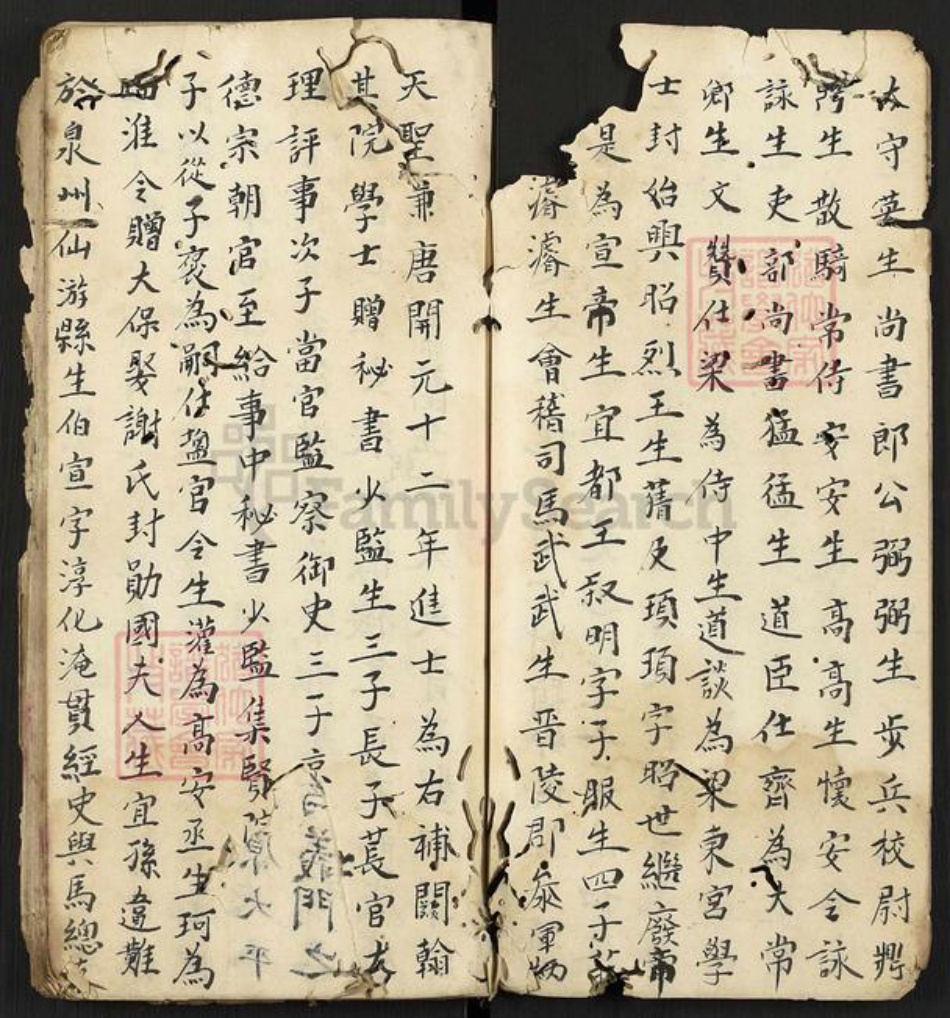 太守蓂生尚書郎公弼弼生步兵校尉鼎
生散騎常侍安安生高高生懷安令詠
詠生吏部尚書猛猛生道臣仕齊為大常
卿生文贊仕梁為侍中生道談為梁東宮學
士封始興昭烈王生蒨及頊頊字昭世繼廢帝
是為宣帝生宜都王叔明字子服生四子
濬濬生會稽司馬武武生晋陵郡叅軍
天聖兼唐開元十二年進士為右補闕翰
院學士贈秘書少監生三子長子萇官
理評事次子當官監察御史三子京
德宗朝官至給事中秘書少監集賢
子以從子褒為嗣仕盩官令生灌為高安丞生珂為
淮令贈大保娶謝氏封勛國夫人生宜孫違難
於泉州仙游縣生伯宣字淳化淹貫經史與馬總
FamilySearch